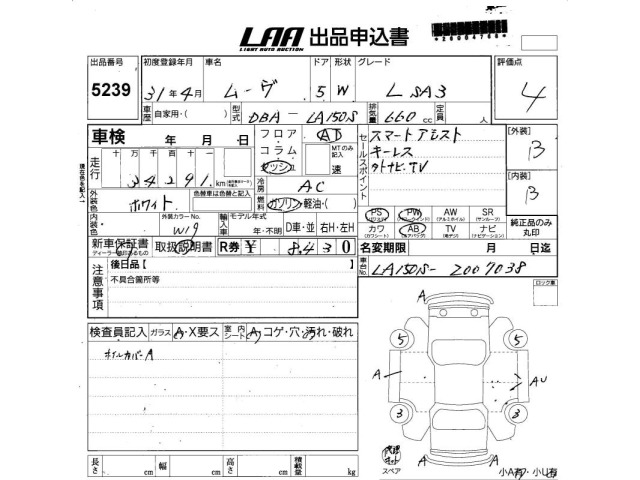 LAA 出品申込書
LIGHT AUTO AUCTION
*26904768*
出品番号 初度登録年月 車名 ドア 形状 グレード 評価点
5239 31年4月 ムーヴ 5 W L SA3 4
車歴 自家用・( ) 型式 DBA-LA150S 排気量 660 cc 定員 人
車検 年 月 日 フロア・コラム・インパネ AT セールスポイント スマートアシスト [外装] B
キーレス
走行 十万千百十一 34291. km MTのみ記入 速 ナビ・TV
冷房 AC [内装] B
外装色 ホワイト 色替車は色替と記入 燃料 ガソリン・軽油・( )
PS PW AW SR
内装色 外装カラーNo. W19 輸入車 モデル年式 年・不明 D車・並 右H・左H
カワ AB TV ナビ 純正品のみ丸印
新車保証書 取扱説明書 R券 ¥ 8430 名変期限 月 日迄
注意事項 後日品[ ] 車台No. LA150S-2007038
不具合箇所等
ロック車
A
検査員記入 ガラス A・X要ス 室内シート A・コゲ・穴・汚れ・破れ
ホイルカバーA
5 5
A AU
3 3
スペア
A
長さ cm 幅 cm 高さ cm 積載量 kg
小A有 小U有